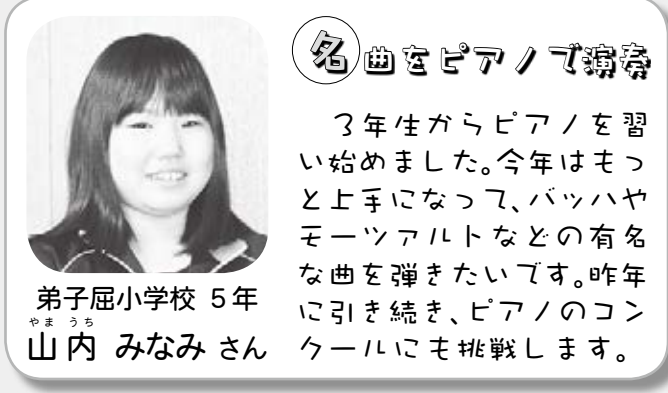 名曲をピアノで演奏
3年生からピアノを習
い始めました。今年はもっ
と上手になって、バッハや
モーツァルトなどの有名
な曲を弾きたいです。昨年
に引き続き、ピアノのコン
クールにも挑戦します。
弟子屈小学校 5年
やま うち
山内 みなみ さん